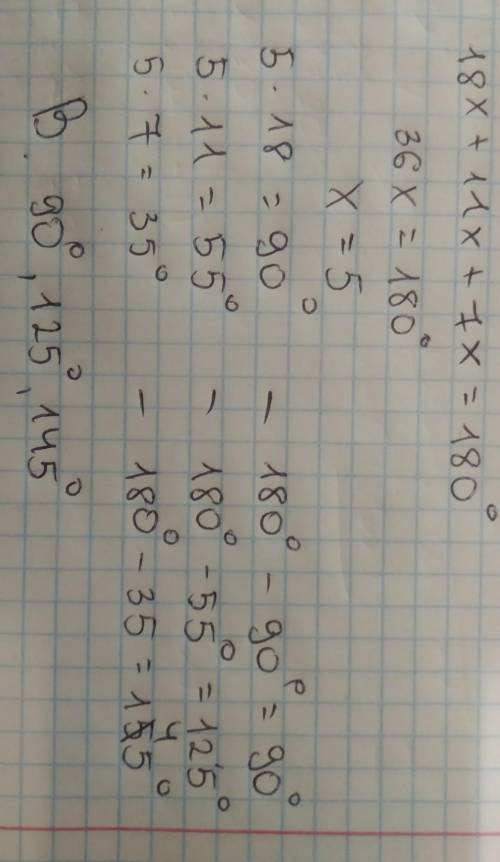 18x + 11x + 7x = 180°
36x = 180°
x = 5
5 · 18 = 90° – 180° – 90° = 90°
5 · 11 = 55° – 180° – 55° = 125°
5 · 7 = 35° – 180° – 35 = 145°
В. 90°, 125°, 145°